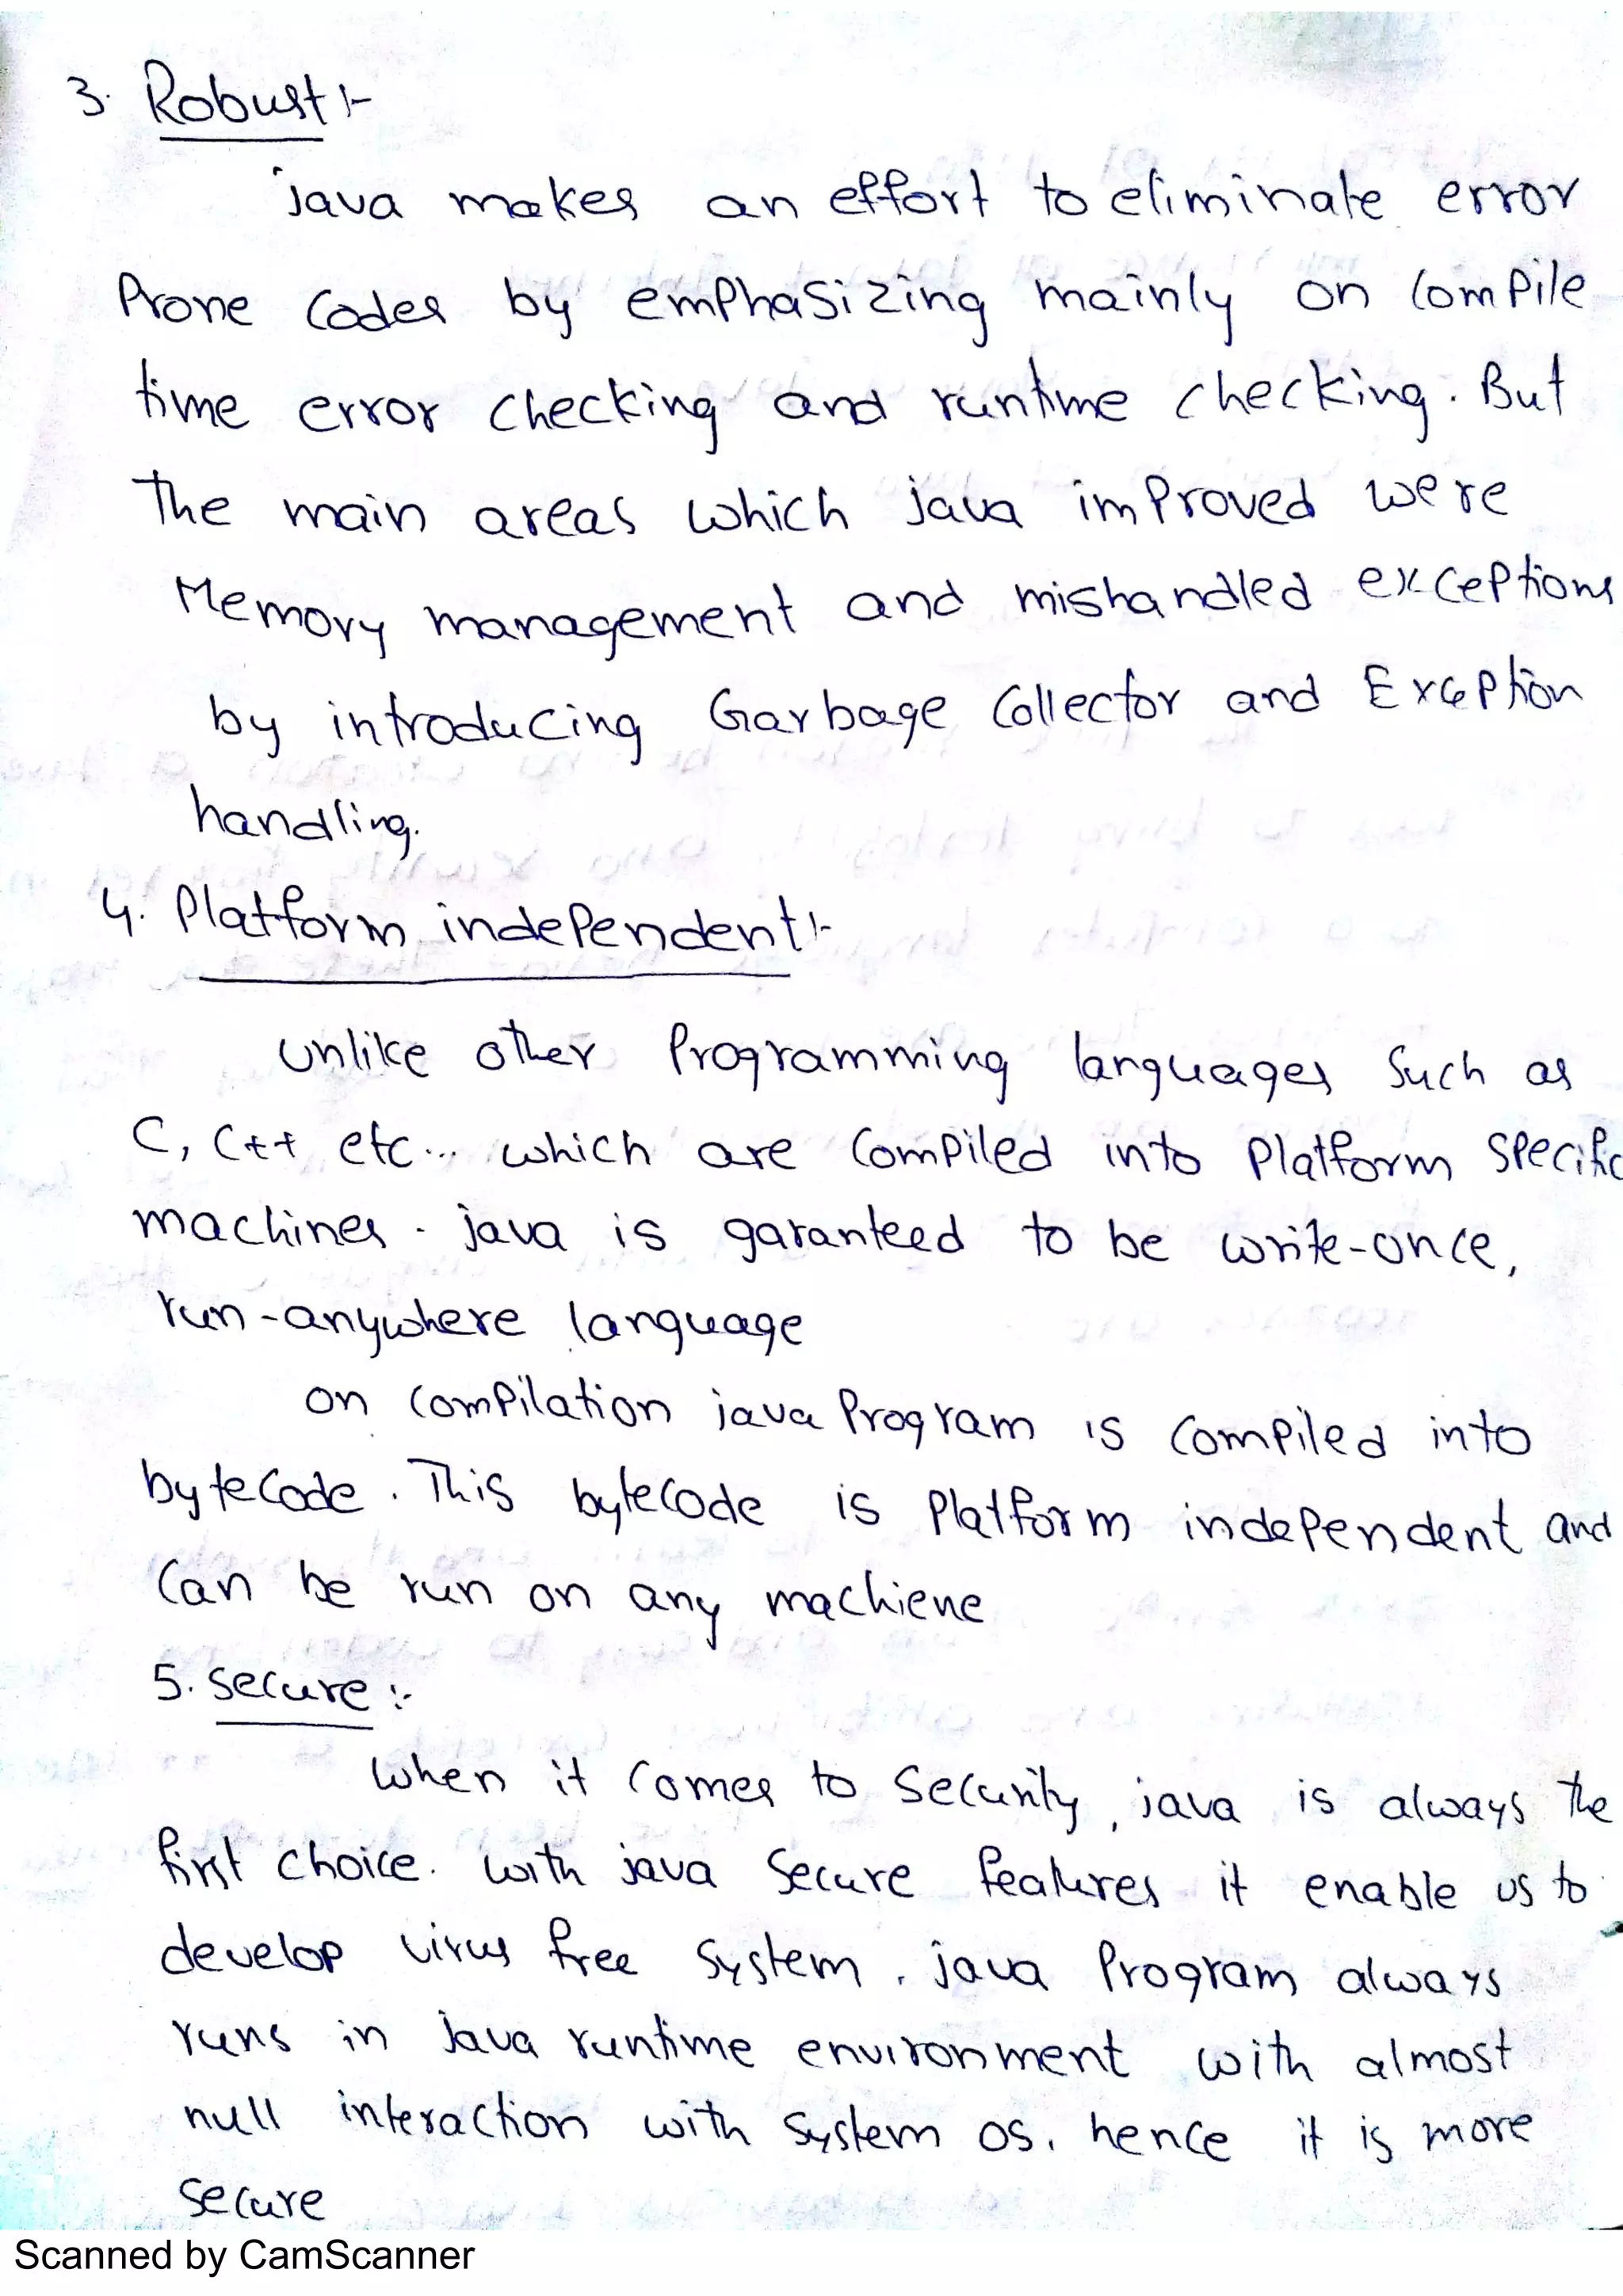 3. Robust :-
java makes an effort to eliminate error
Prone Codes by emphasizing mainly on Compile
time error checking and runtime checking. But
The main areas which java improved were
Memory management and mishandled exceptions
by introducing Garbage Collector and Exception
handling.
4. Platform independent :-
unlike other Programming languages Such as
C, C++ etc... which are Compiled into Platform specific
machines. java is garanteed to be write-once,
run-anywhere language
on Compilation java Program is Compiled into
bytecode. This bytecode is Platform independent and
Can be run on any machiene
5. Secure :-
When it Comes to Security, java is always the
first choice. With java Secure features it enable us to
develop virus free System. java Program always
runs in Java runtime environment with almost
null interaction with System OS. hence it is more
Secure
Scanned by CamScanner